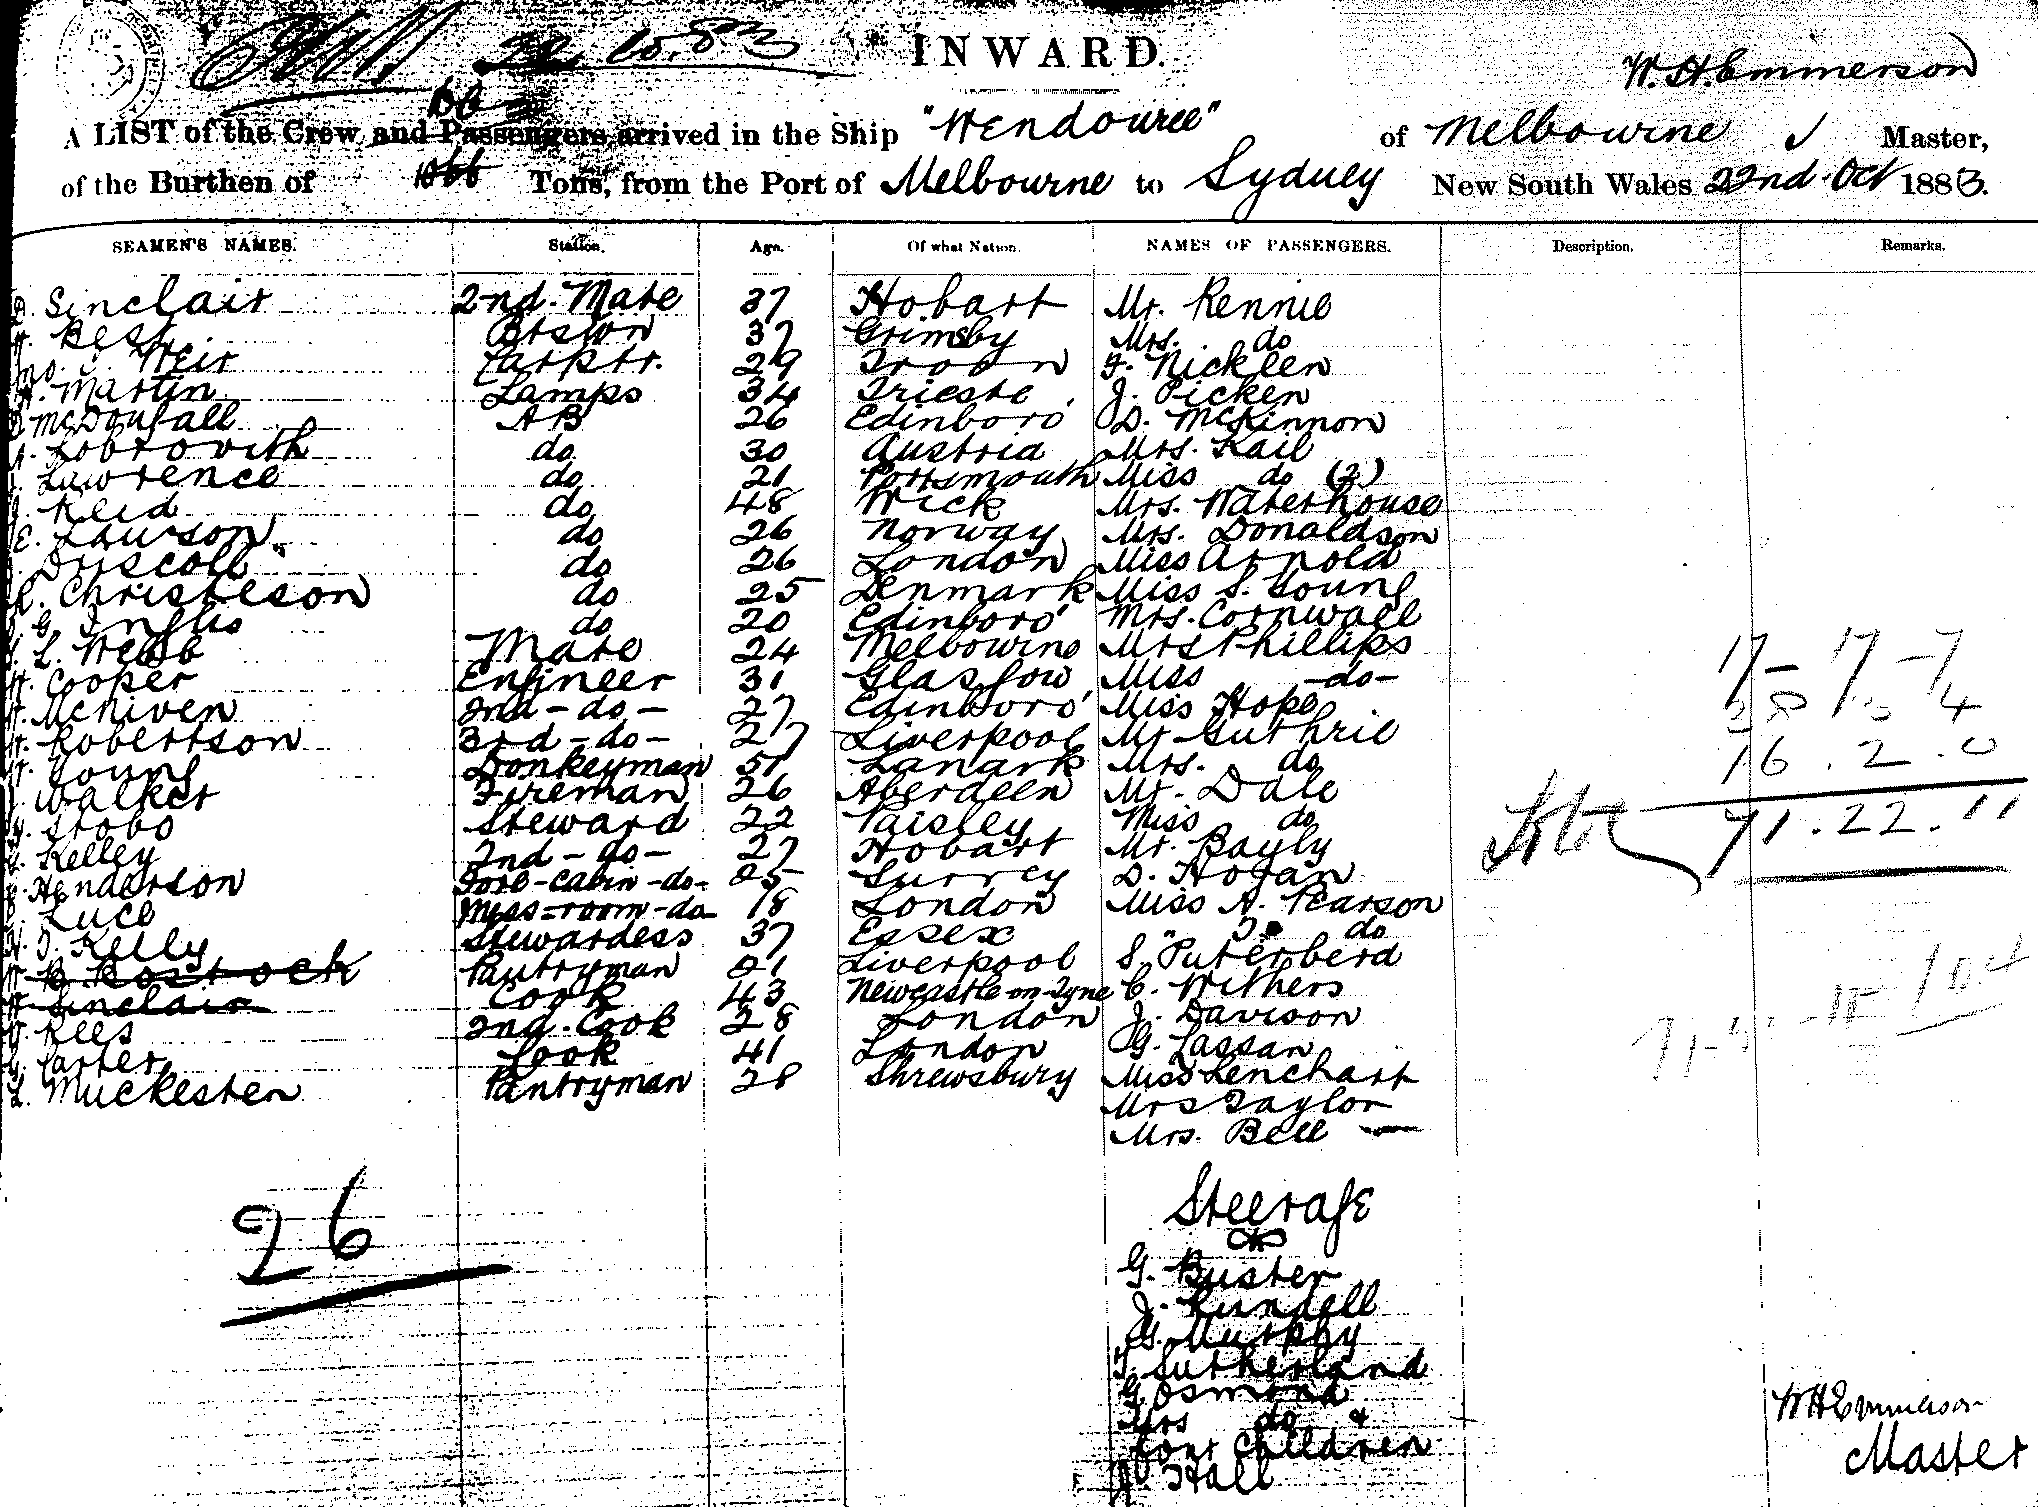 22.10.83
INWARD.
W. H. Emmerson
A LIST of the Crew and Passengers arrived in the Ship "Wendouree" of Melbourne Master,
of the Burthen of 1066 Tons, from the Port of Melbourne to Sydney New South Wales 22nd Oct 1883.
SEAMEN'S NAMES. Station. Age. Of what Nation. NAMES OF PASSENGERS. Description. Remarks.
Sinclair 2nd. Mate 37 Hobart Mr. Rennie
Best Btswn 37 Grimsby Mrs. do
Jno. J. Weir Carptr. 29 Troon F. Nicklen
A. Martin Lamps 34 Trieste J. Picken
McDougall AB 26 Edinboro' D. McKinnon
Lobrovith do 30 Austria Mrs. Kail
Lawrence do 21 Portsmouth Miss do (2)
Reid do 48 Wick Mrs. Waterhouse
E. Lawson do 26 Norway Mrs. Donaldson
Driscoll do 26 London Miss Arnold
Christeson do 25 Denmark Miss S. Young
G. Inglis do 20 Edinboro' Mrs. Cornwall
L. Webb Mate 24 Melbourne Mrs Phillips
Cooper Engineer 31 Glasgow Miss -do-
McNiven 2nd - do - 27 Edinboro' Miss Hope
Robertson 3rd - do - 27 Liverpool Mr Guthrie
Young Donkeyman 51 Lanark Mrs. do
Walker Fireman 26 Aberdeen Mr. Dale
Strobo Steward 22 Paisley Miss do
Kelley 2nd - do - 27 Hobart Mr. Bayly
Henderson Fore-cabin -do- 25 Surrey D. Hogan
Luce Mess-room-do- 18 London Miss A. Pearson
Kelly Stewardess 37 Essex " J. do
B. Bostock Pantryman 21 Liverpool S. Puterberd
Sinclair Cook 43 Newcastle-on-Tyne C. Withers
Rees 2nd. Cook 28 London J. Davison
Carter Cook 41 London G. Cassan
L. Muckesten Pantryman 28 Shrewsbury Miss Lenchart
Mrs Taylor
Mrs. Bell
17-17-7
16.2.0
71.22.11
26
Steerage
G. Buster
J. Rundell
G. Murphy
T. Sutherland
G. Osmond
Mrs do &
four children
J. Hall
W H Emmerson
Master